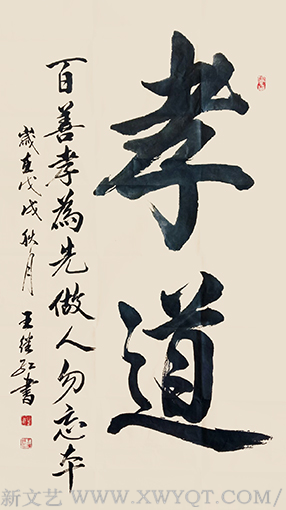 孝道
百善孝為先做人勿忘本
歲在戊戌秋月
王继红書
新文艺 WWW.XWYQT.COM/